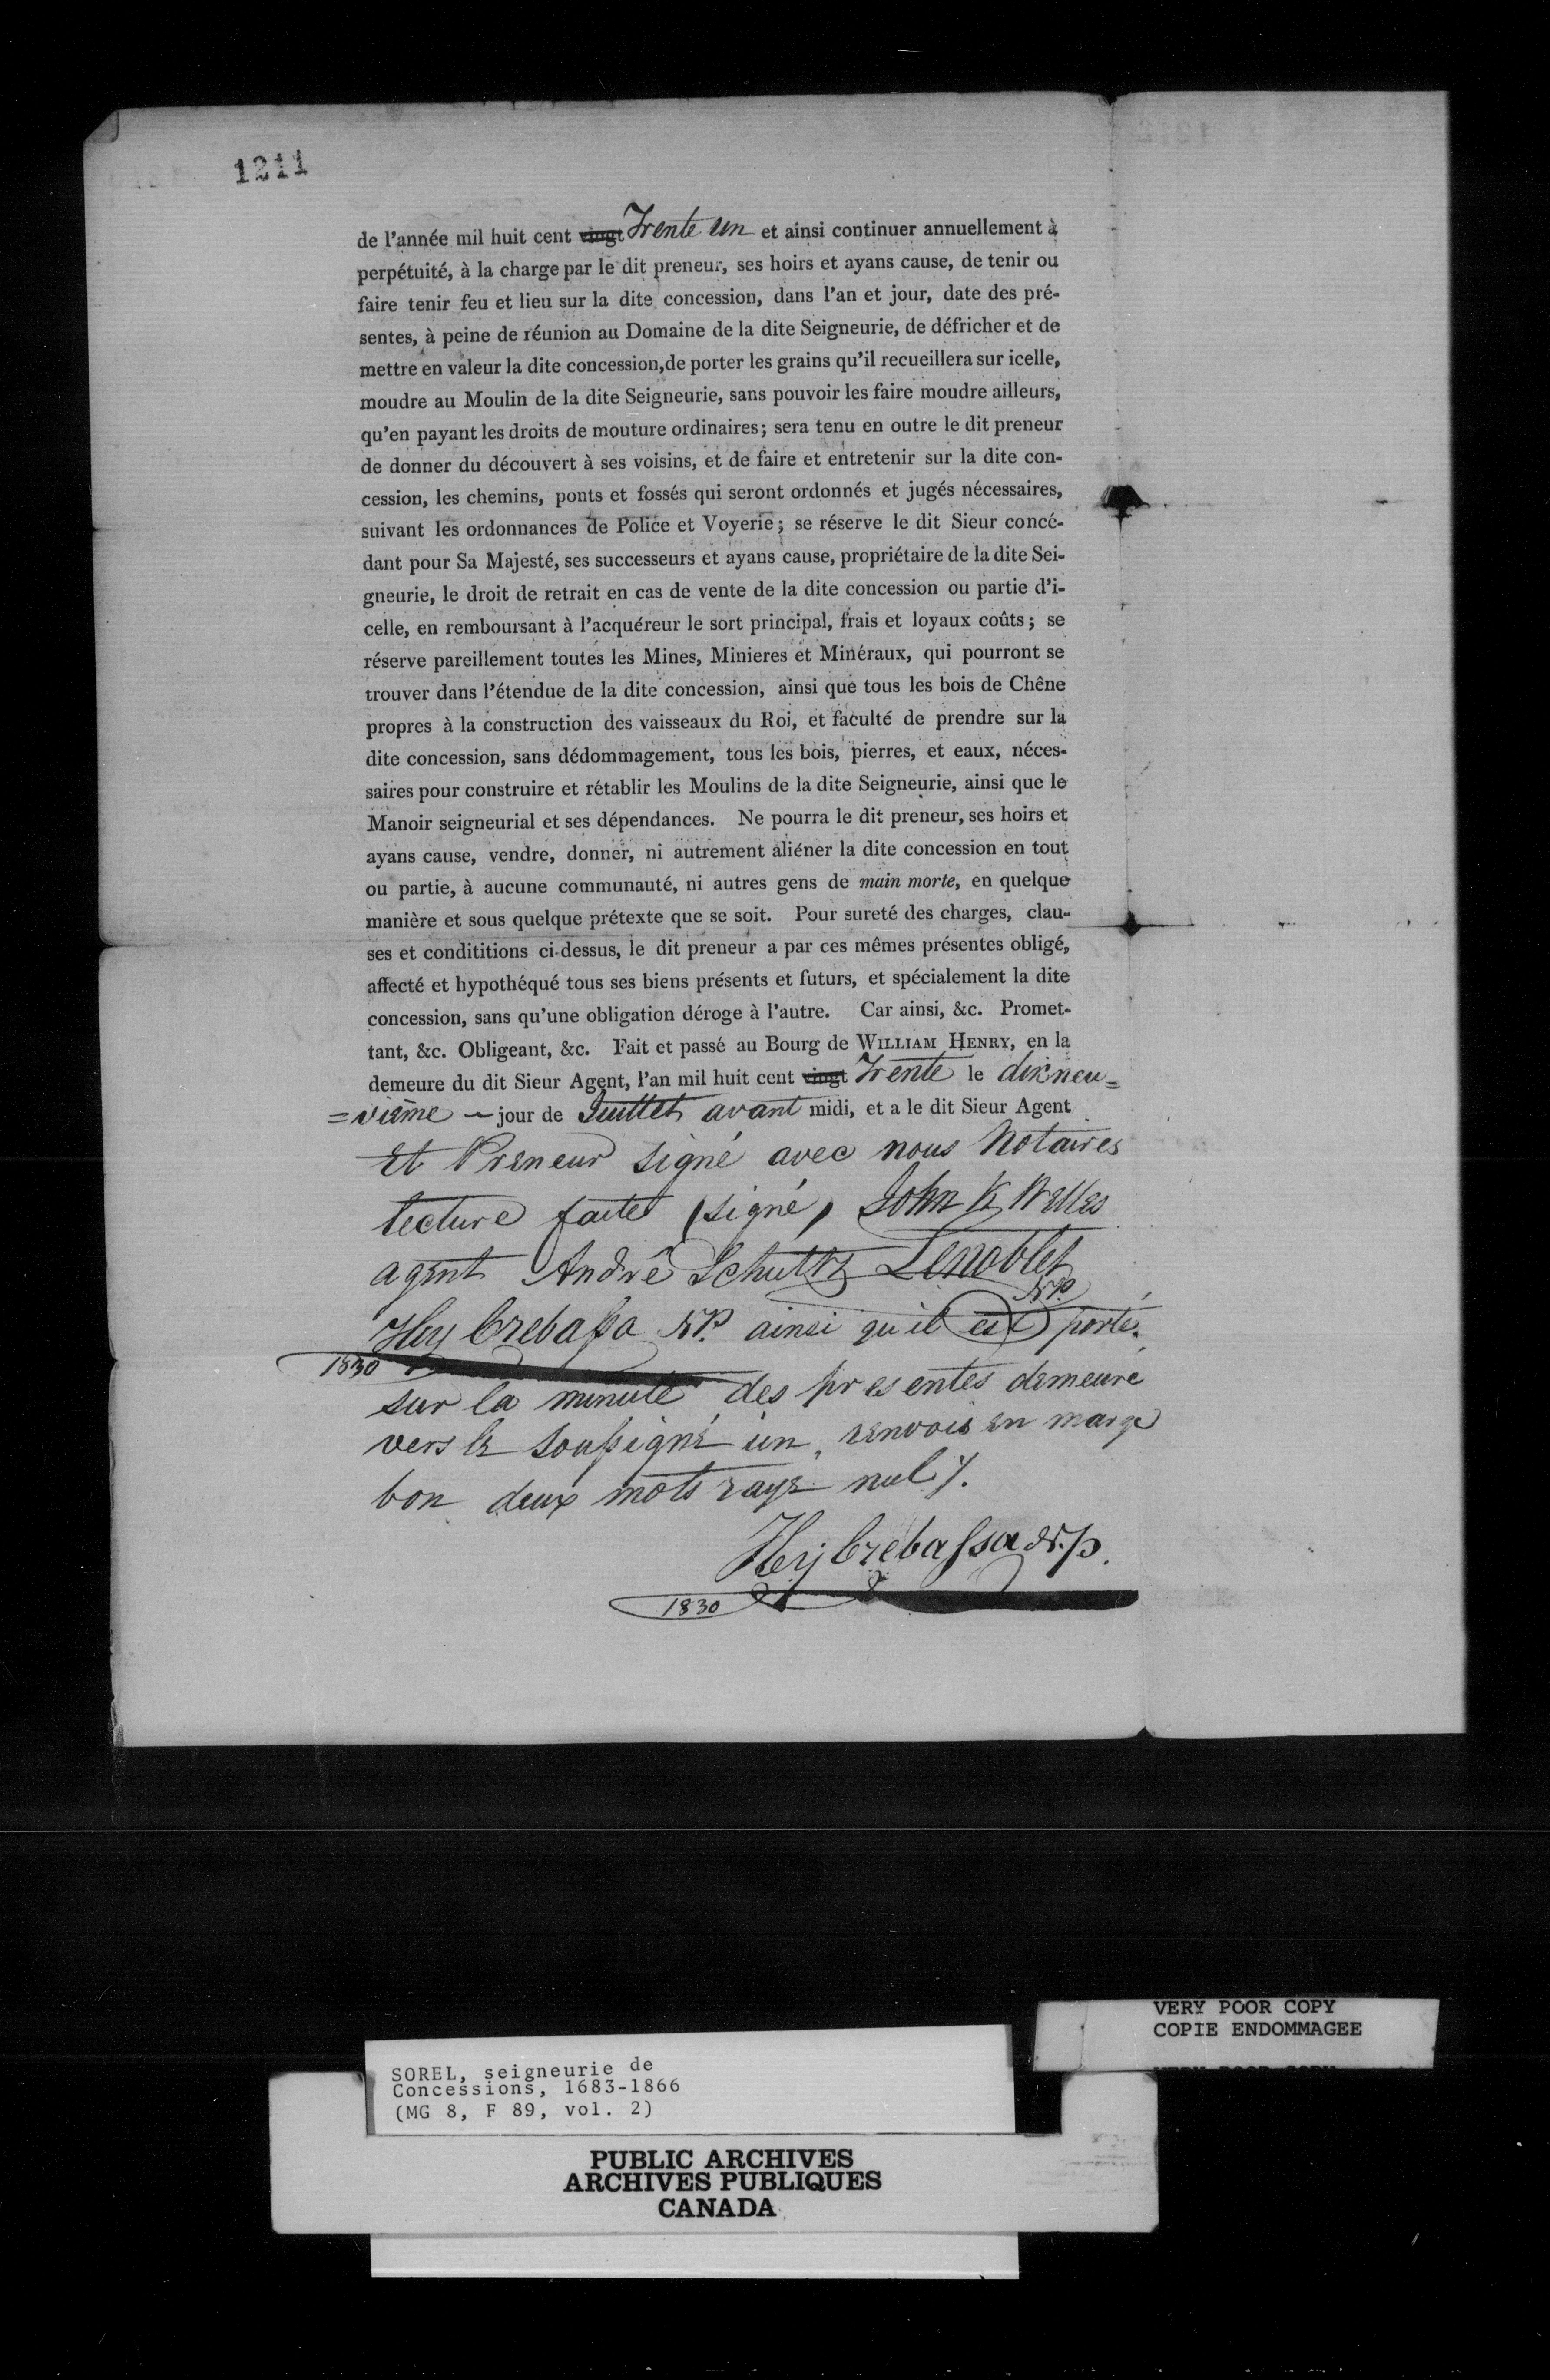 1211
de l'année mil huit cent vingt Trente un et ainsi continuer annuellement à
perpétuité, à la charge par le dit preneur, ses hoirs et ayans cause, de tenir ou
faire tenir feu et lieu sur la dite concession, dans l'an et jour, date des pré-
sentes, à peine de réunion au Domaine de la dite Seigneurie, de défricher et de
mettre en valeur la dite concession, de porter les grains qu'il recueillera sur icelle,
moudre au Moulin de la dite Seigneurie, sans pouvoir les faire moudre ailleurs,
qu'en payant les droits de mouture ordinaires; sera tenu en outre le dit preneur
de donner du découvert à ses voisins, et de faire et entretenir sur la dite con-
cession, les chemins, ponts et fossés qui seront ordonnés et jugés nécessaires,
suivant les ordonnances de Police et Voyerie; se réserve le dit Sieur concé-
dant pour Sa Majesté, ses successeurs et ayans cause, propriétaire de la dite Sei-
gneurie, le droit de retrait en cas de vente de la dite concession ou partie d'i-
celle, en remboursant à l'acquéreur le sort principal, frais et loyaux coûts; se
réserve pareillement toutes les Mines, Minieres et Minéraux, qui pourront se
trouver dans l'étendue de la dite concession, ainsi que tous les bois de Chêne
propres à la construction des vaisseaux du Roi, et faculté de prendre sur la
dite concession, sans dédommagement, tous les bois, pierres, et eaux, néces-
saires pour construire et rétablir les Moulins de la dite Seigneurie, ainsi que le
Manoir seigneurial et ses dépendances. Ne pourra le dit preneur, ses hoirs et
ayans cause, vendre, donner, ni autrement aliéner la dite concession en tout
ou partie, à aucune communauté, ni autres gens de main morte, en quelque
manière et sous quelque prétexte que se soit. Pour sureté des charges, clau-
ses et condititions ci-dessus, le dit preneur a par ces mêmes présentes obligé,
affecté et hypothéqué tous ses biens présents et futurs, et spécialement la dite
concession, sans qu'une obligation déroge à l'autre. Car ainsi, &c. Promet-
tant, &c. Obligeant, &c. Fait et passé au Bourg de WILLIAM HENRY, en la
demeure du dit Sieur Agent, l'an mil huit cent vingt Trente le dixneu=
=vième ~ jour de Juillet avant midi, et a le dit Sieur Agent
Et Preneur signé avec nous Notaires
lecture faite (signé) John K Welles
agent André Schultz Lenoblet
NP.
Hry Crebassa NP. ainsi qu'il est porté
1830
sur la minute des presentes demeuré
vers le soussigné un renvois en marge
bon deux mots rayé nul ./.
Hry Crebassa N.P.
1830
VERY POOR COPY
COPIE ENDOMMAGEE
VERY POOR COPY
SOREL, seigneurie de
Concessions, 1683-1866
(MG 8, F 89, vol. 2)
PUBLIC ARCHIVES
ARCHIVES PUBLIQUES
CANADA